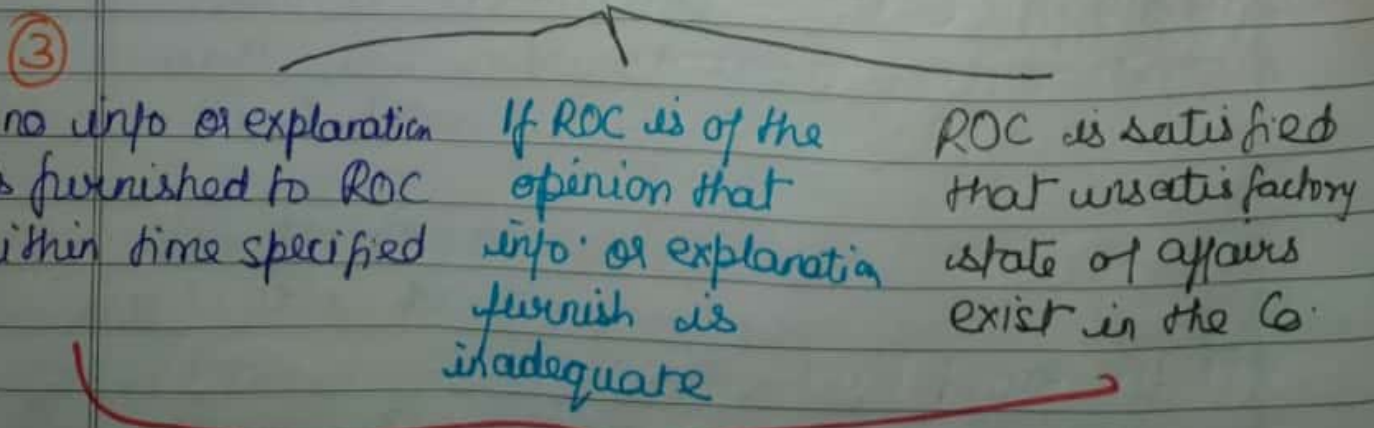 ③
no info or explanation
s furnished to ROC
ithin time specified
If ROC is of the
opinion that
info. or explanation
furnish is
inadequate
ROC is satisfied
that unsatisfactory
state of affairs
exist in the Co.